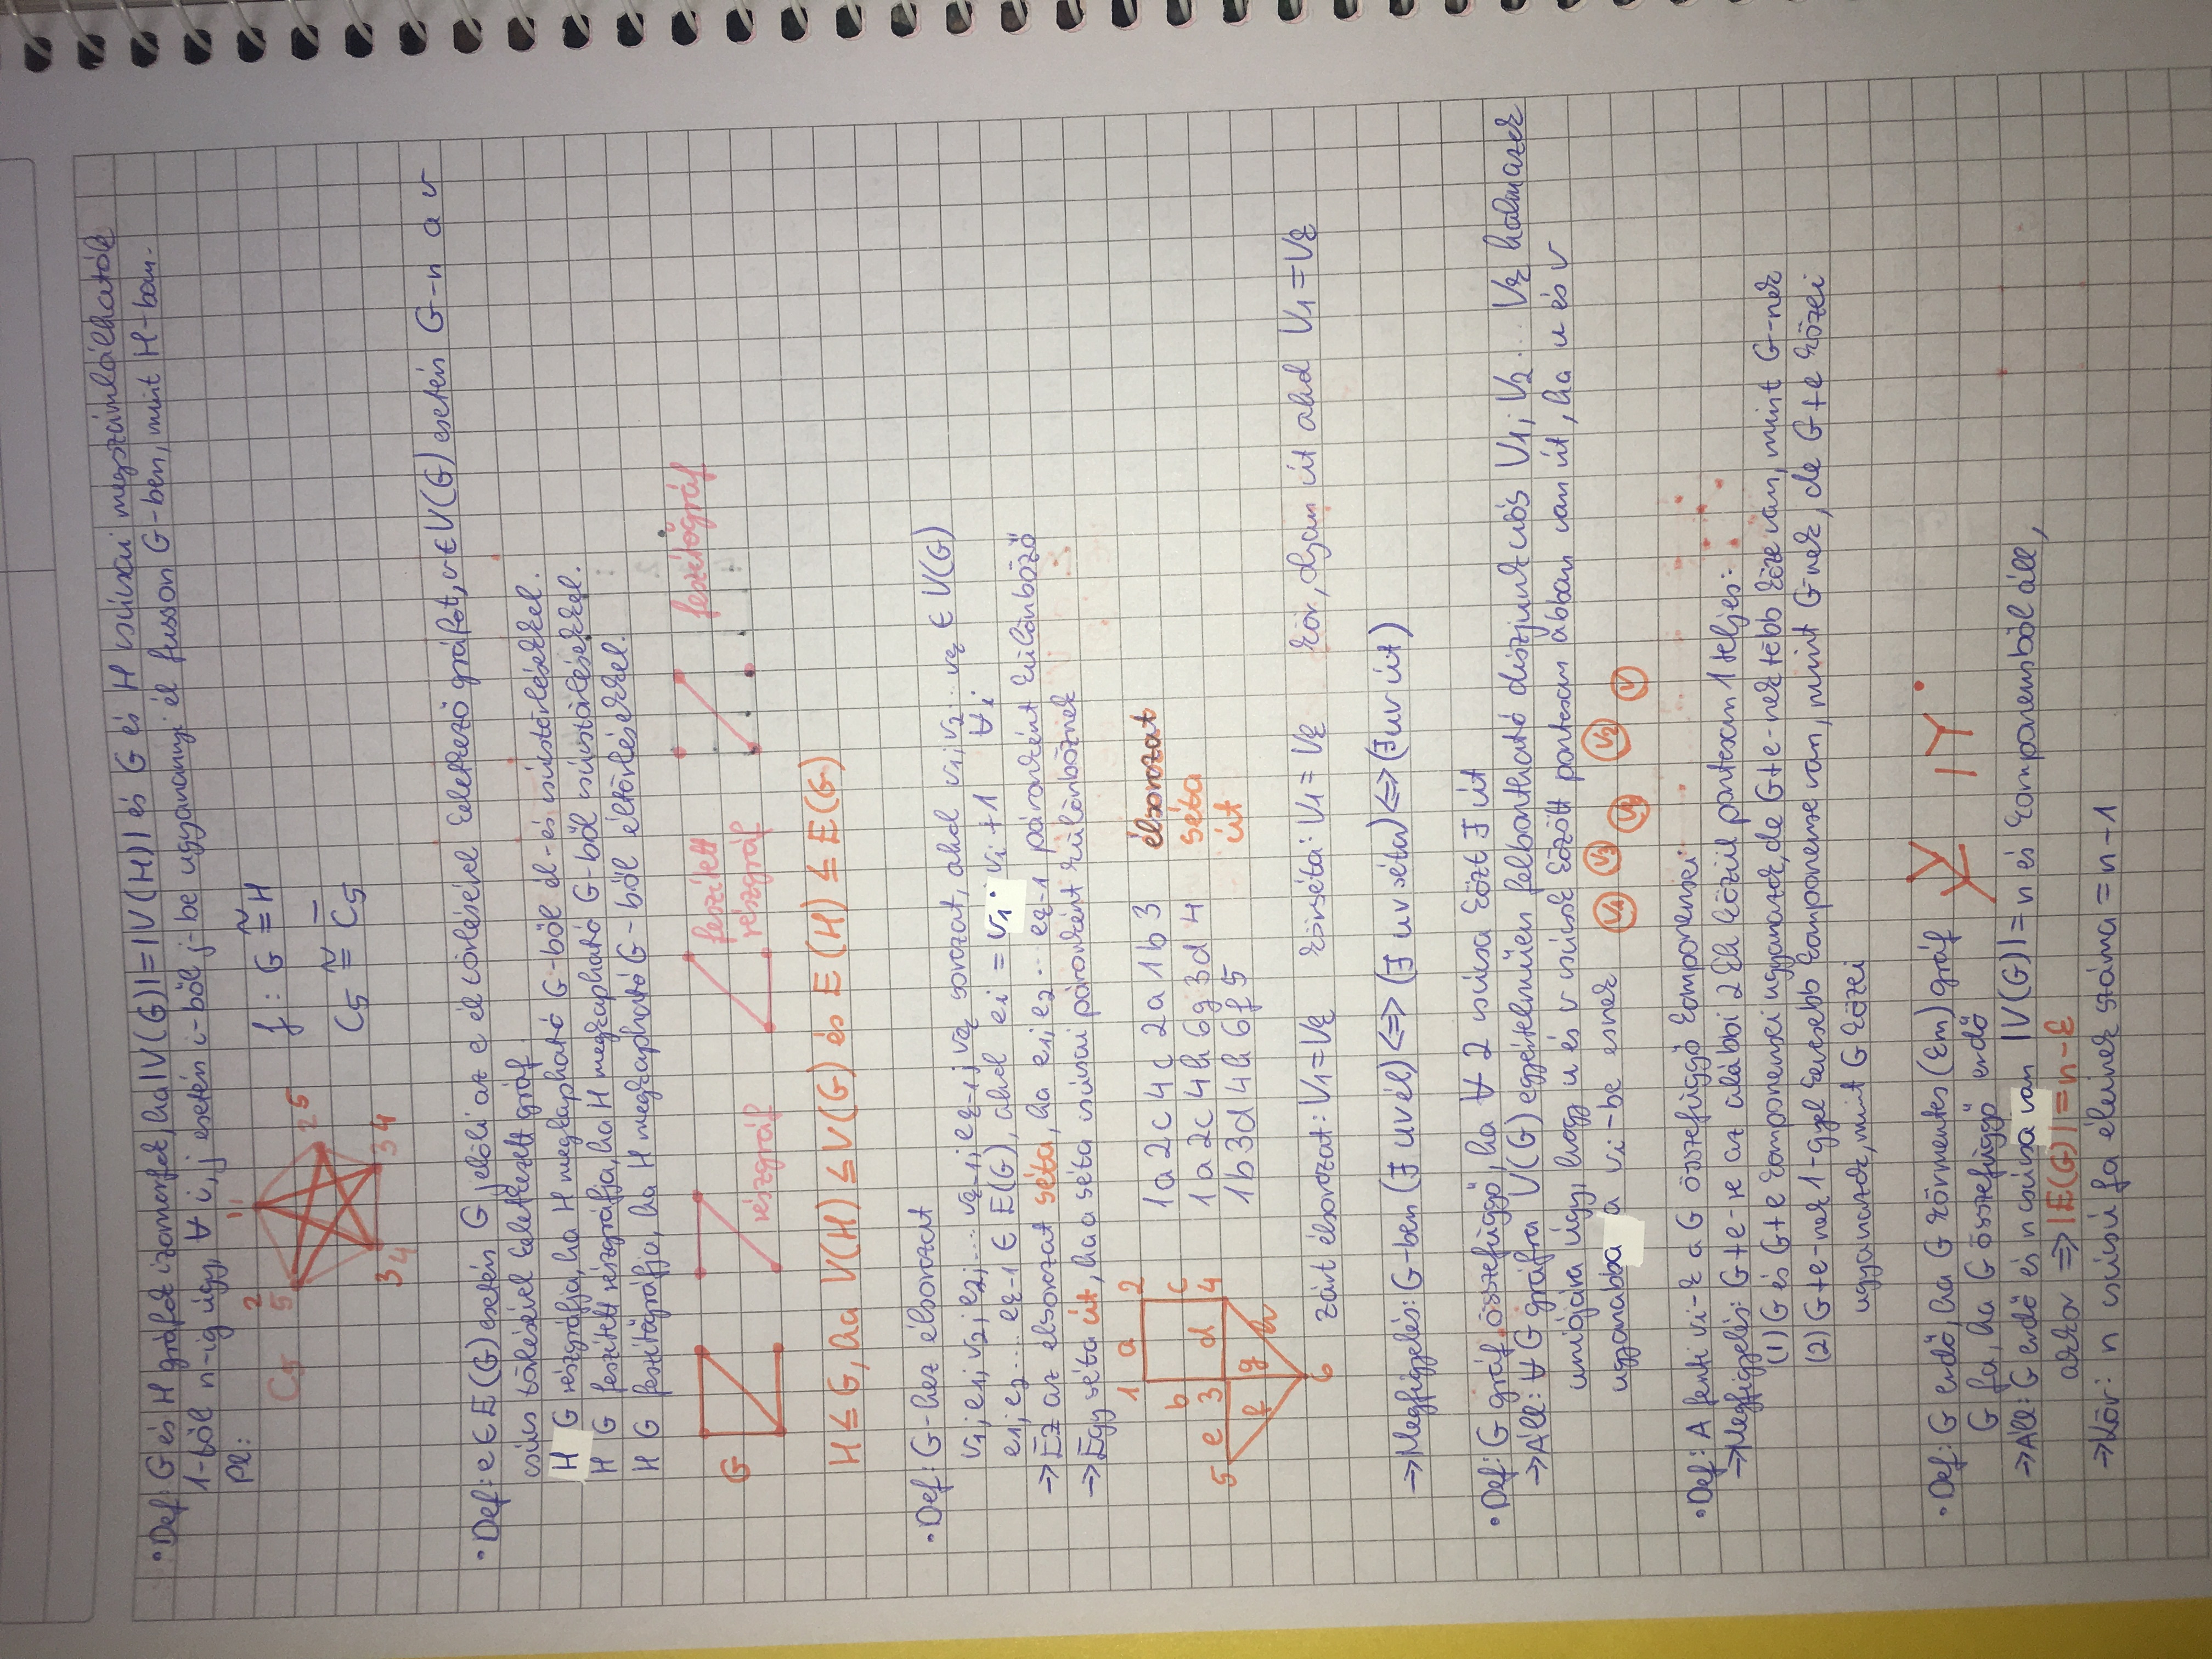 • Def: G és H gráfok izomorfok, ha |V(G)|=|V(H)| és G és H csúcsai megszámlálhatók
1-ből n-ig úgy, ∀ i, j esetén i-ből j-be ugyanannyi él fusson G-ben, mint H-ban.
Pl:
C5
1 1
2 5
2 5
3 4
3 4
f : G ≅ H
C5 ≅ C̅5
• Def: e ∈ E(G) esetén G jelöli az e él törlésével keletkező gráfot, v ∈ V(G) esetén G-n a v
csúcs törlésével keletkezett gráf
H G részgráfja, ha H megkapható G-ből él- és csúcstörlésekkel.
H G feszített részgráfja, ha H megkapható G-ből csúcstörlésekkel.
H G feszítőgráfja, ha H megkapható G-ből éltörlésekkel.
G
részgráf
feszített
részgráf
feszítőgráf
H ≤ G, ha V(H) ≤ V(G) és E(H) ≤ E(G)
• Def: G-hez élsorozat
v1; e1; v2; e2; ... vk-1; ek-1; vk sorozat, ahol v1; v2 ... vk ∈ V(G)
e1; e2 .... ek-1 ∈ E(G), ahol ei = v1 · vi+1 ∀i
→ Ez az élsorozat séta, ha e1; e2 ... ek-1 páronként különböző
→ Egy séta út, ha a séta csúcsai páronként különböznek
1 a 2
b c
5 e 3 d 4
f g h
6
1a2c4c2a1b3 élsorozat
1a2c4h6g3d4 séta
1b3d4h6f5 út
zárt élsorozat: V1=Vk körséta: V1=Vk kör, olyan út ahol V1=Vk
→ Megfigyelés: G-ben (∃ uv él) ⇔ (∃ uv séta) ⇔ (∃ uv út)
• Def: G gráf összefüggő, ha ∀ 2 csúcsa közt ∃ út
→ Áll: ∀ G gráfra V(G) egyértelműen felbontható diszjunkt V1; V2 ... Vk halmazok
uniójára úgy, hogy u és v csúcsok között pontosan abban van út, ha u és v
ugyanabba a vi-be esnek V1 V3 V4 V2 V
• Def: A fenti vi-k a G összefüggő komponensei
→ Megfigyelés: G+e-re az alábbi 2 közül pontosan 1 teljes:
(1) G és G+e komponensei ugyanazok, de G+e-nek több köre van, mint G-nek
(2) G+e-nek 1-gyel kevesebb komponense van, mint G-nek, de G+e körei
ugyanazok, mint G körei
• Def: G erdő, ha G körmentes (km) gráf
G fa, ha G összefüggő erdő
→ Áll: G erdő és n csúcsa van |V(G)|=n és komponensből áll,
akkor ⇒ |E(G)|=n-k
→ Köv: n csúcsú fa éleinek száma = n-1